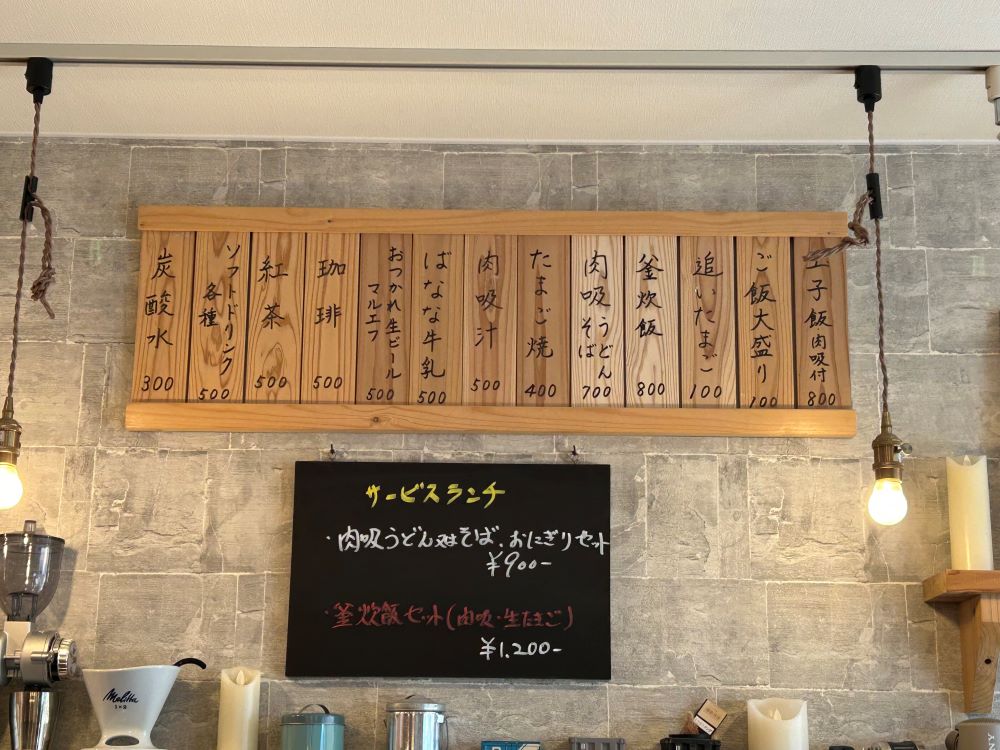 玉子飯肉吸付
800
ご飯大盛り
100
追いたまご
100
釜炊飯
800
肉吸うどん
そば
700
たまご焼
400
肉吸汁
500
ばなな牛乳
500
おつかれ生ビール
マルエフ
500
珈琲
500
紅茶
500
ソフトドリンク
各種
500
炭酸水
300
サービスランチ
・肉吸うどん又はそば・おにぎりセット
¥900-
・釜炊飯セット(肉吸・生たまご)
¥1,200-
Melitta